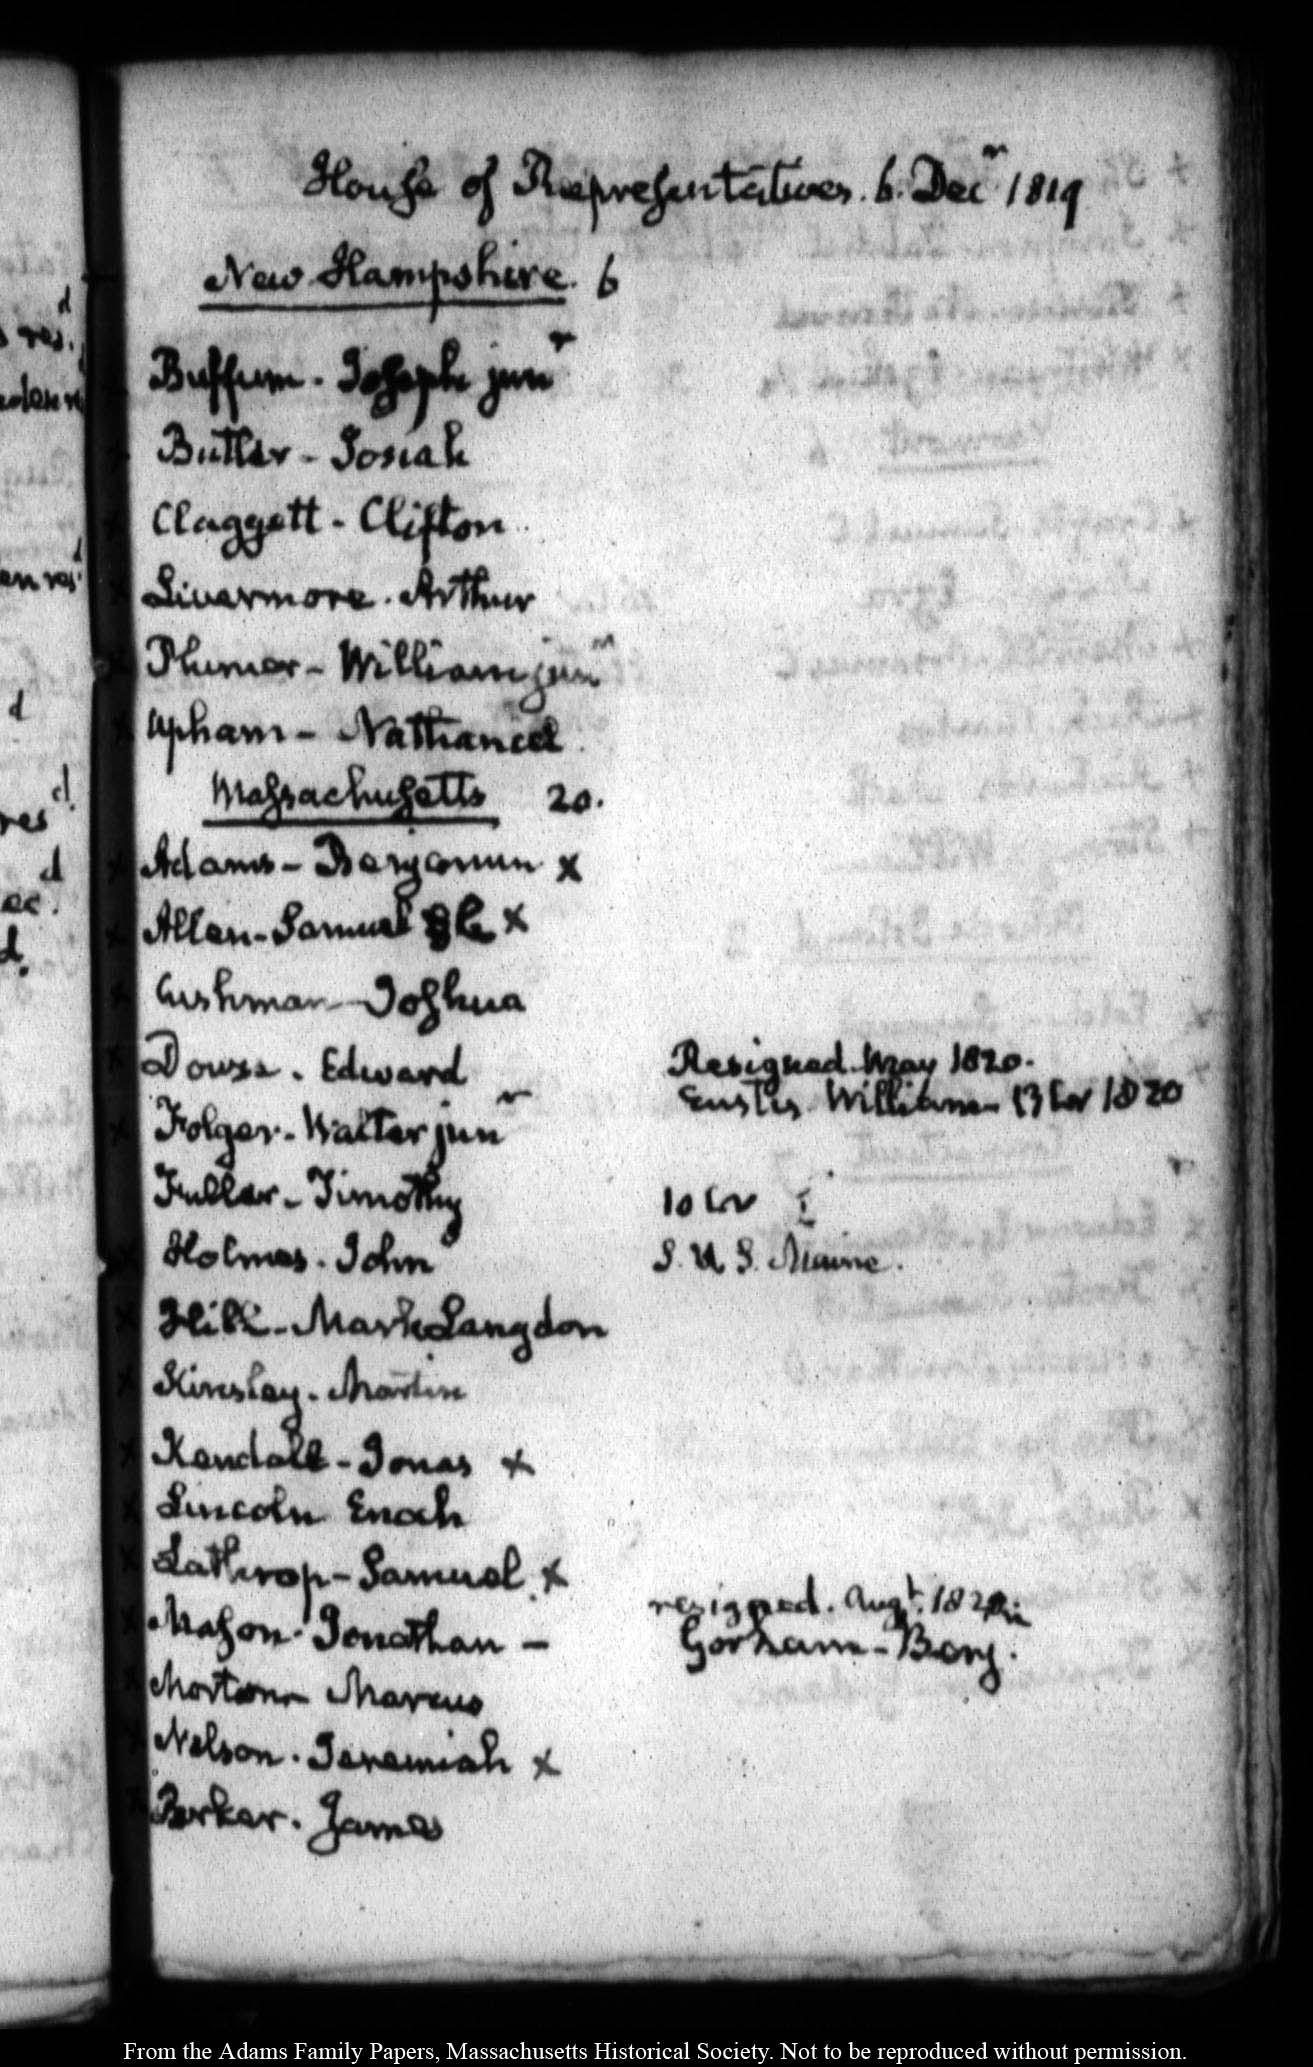 House of Representatives. 6. Decr 1819
New Hampshire. 6
Buffum. Joseph junr
Butler - Josiah
Claggett - Clifton
Livermore. Arthur
Plumer - William junr
Upham - Nathaniel
Massachusetts 20.
x Adams - Benjamin x
Allen - Samuel C x
Cushman - Joshua
Dowse. Edward Resigned. May 1820.
Eustis. William - 13 1820
Folger. Walter junr
Fuller - Timothy 10
Holmes. John S. U. S. Maine.
Hill - Mark Langdon
Kinsley. Martin
Kendall - Jonas x
Lincoln Enoch
Lathrop - Samuel x
resigned. Augt. 1820
Mason. Jonathan - Gorham - Benj.
Morton - Marcus
Nelson. Jeremiah x
Parker. James
d
res.
d
res
d
d.
From the Adams Family Papers, Massachusetts Historical Society. Not to be reproduced without permission.